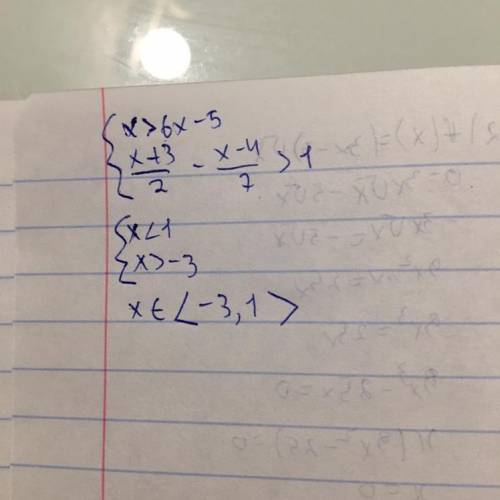 x > 6x - 5
x+3/2 - x-4/7 > 1
x < 1
x > -3
x ∈ < -3, 1 >